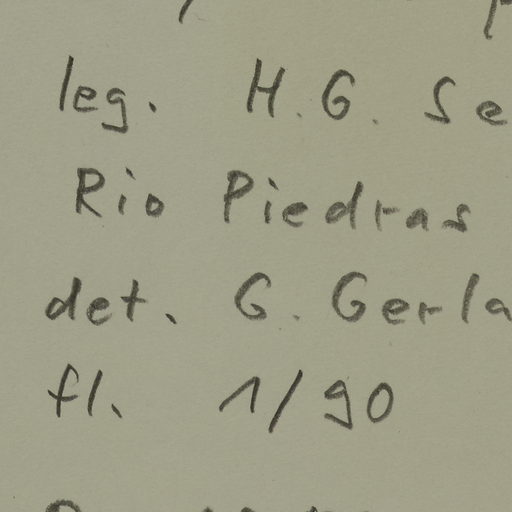 leg. H.G. Se
Rio Piedras
det. G. Gerla
fl. 1/90